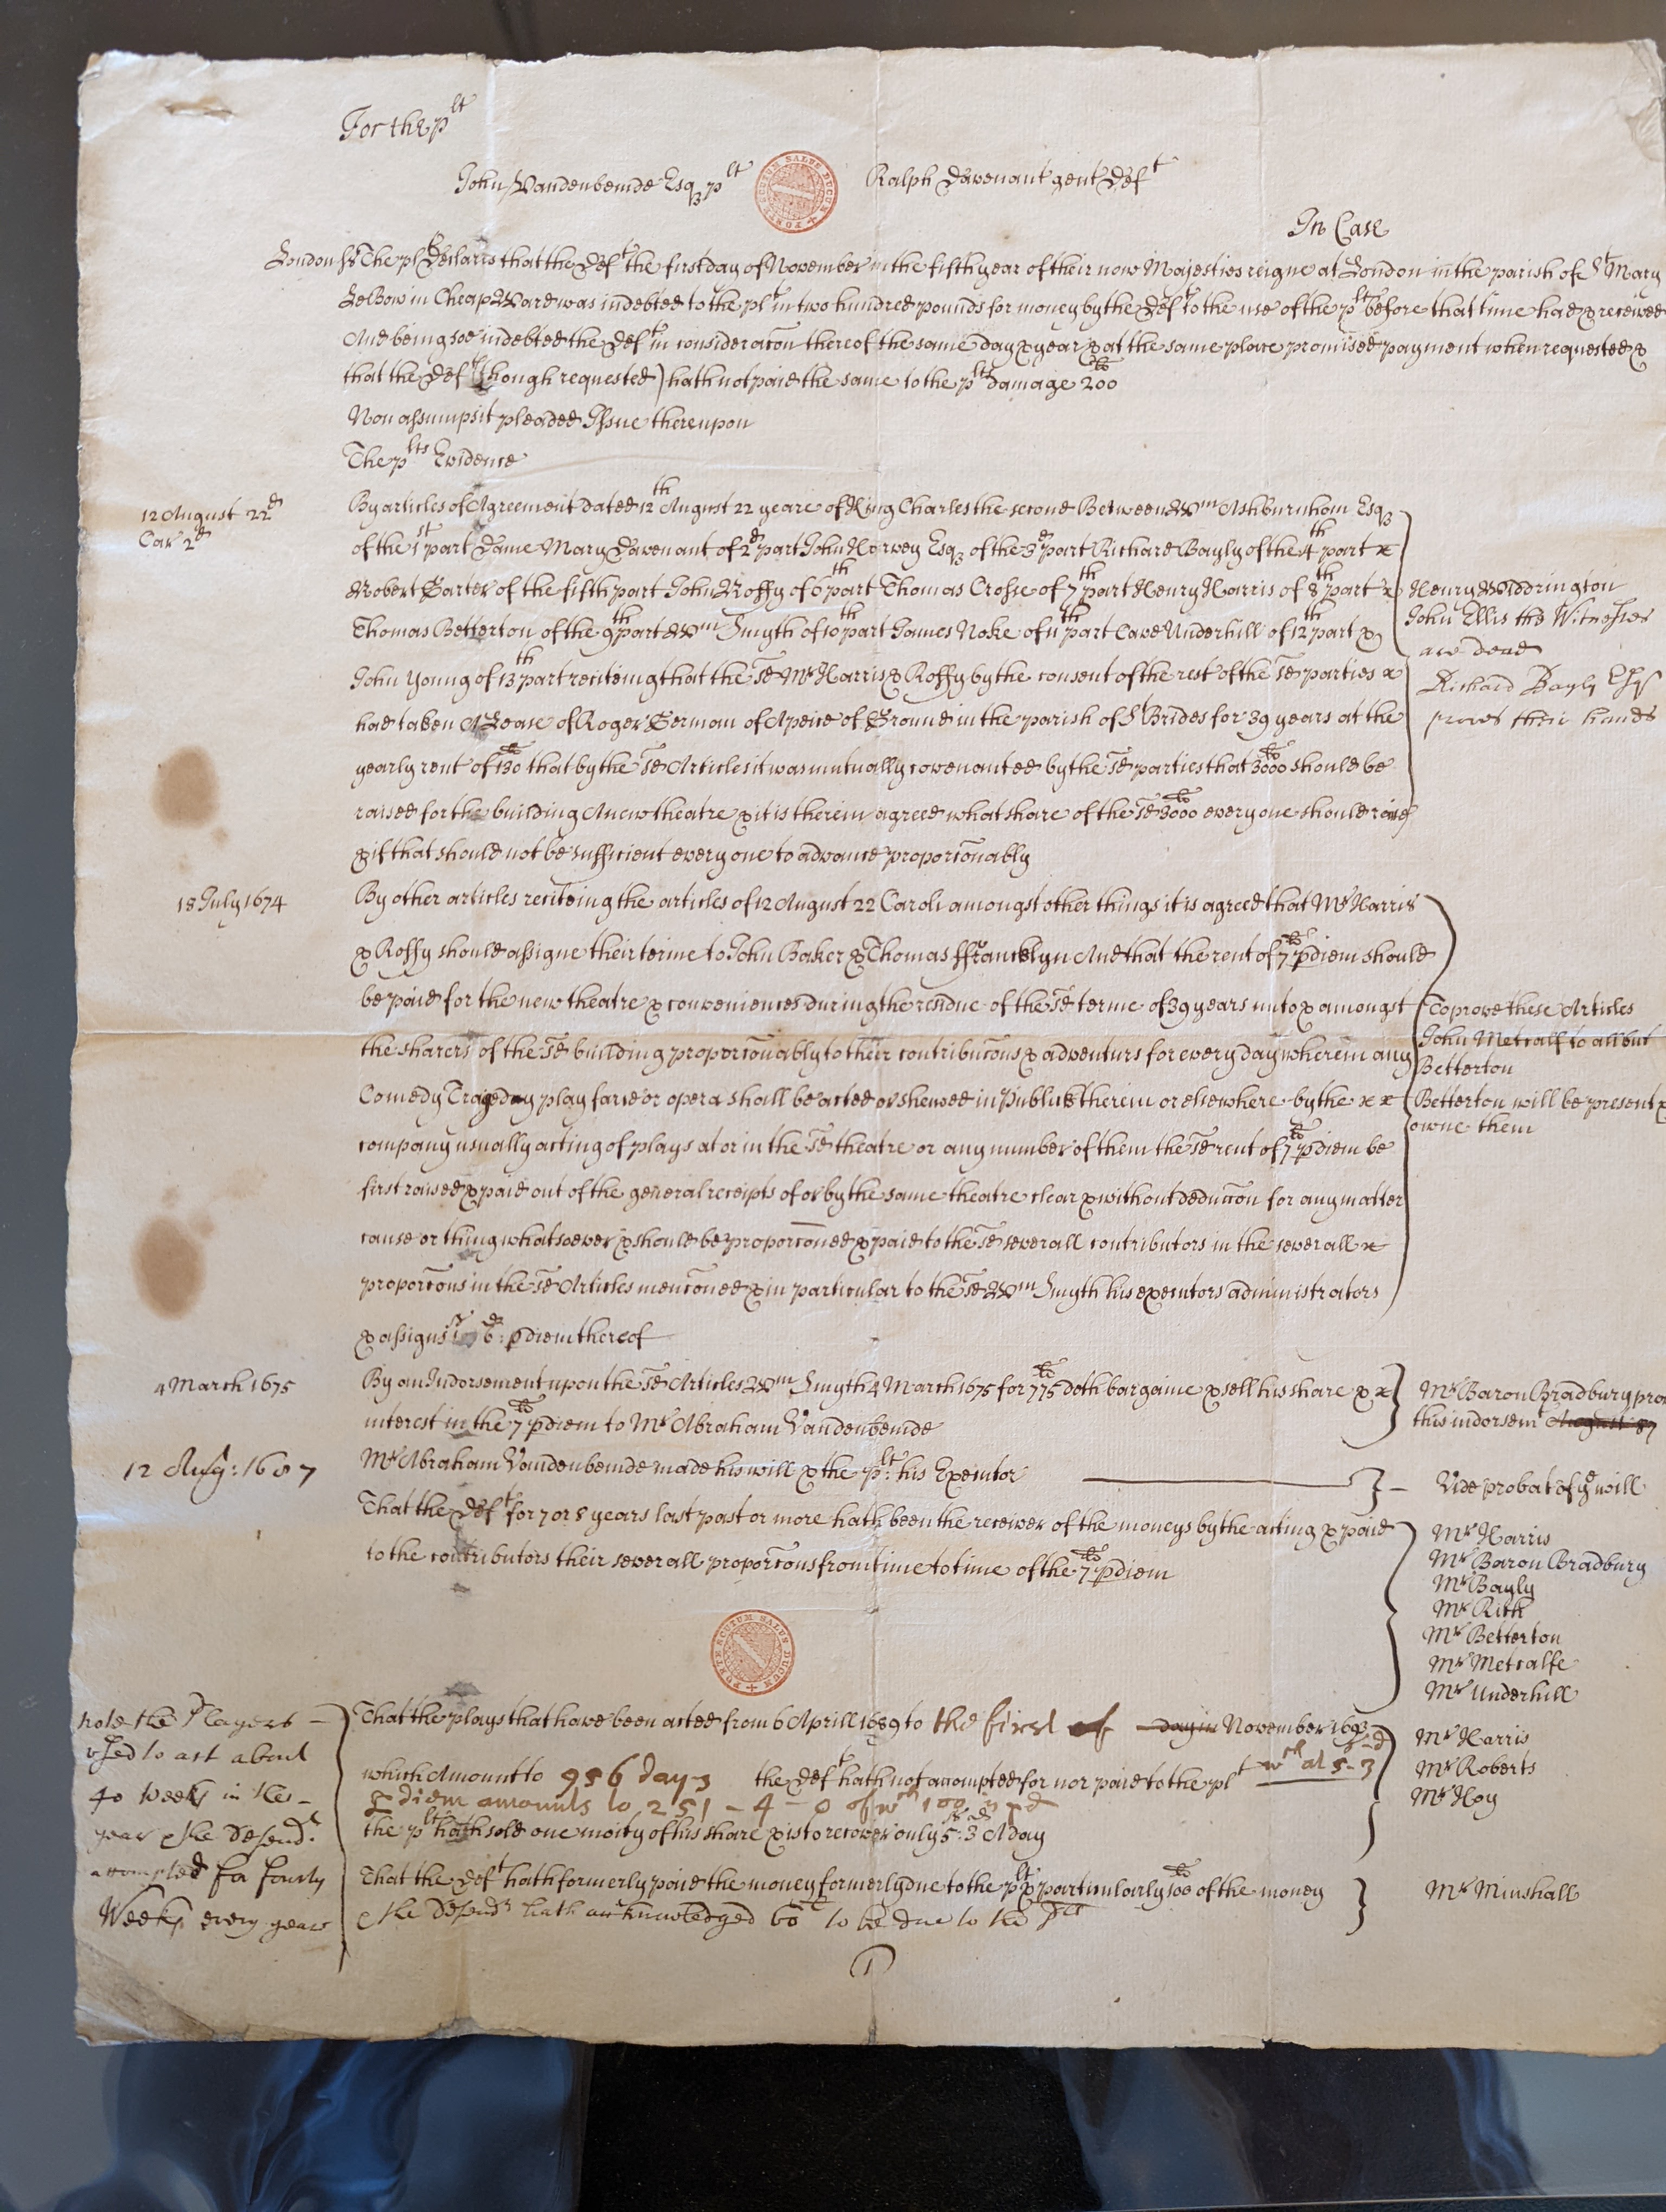 For the plt
John Vandenbemde Esq plt
Ralph Davenant gent Deft
In Case
London ss The plt Declares that the Deft the first day of November in the fifth year of their now Majesties reigne at London in the parish of St Mary
LeBow in Cheap Ward was indebted to the plt in two hundred pounds for money by the Deft to the use of the plt before that time had & received
And being soe indebted the Deft in consideracon thereof the same day & year & at the same place promised payment when requested &
that the Deft (though requested) hath not paid the same to the plts damage 200lb
Non assumpsit pleaded Issue thereupon
The plts Evidence
12 August 22d
Car 2d
By articles of Agreement dated 12th August 22 yeare of King Charles the second Between Wm Ashburnham Esq
of the 1st part Dame Mary Davenant of 2d part John Harvey Esq of the 3d part Richard Bayly of the 4th part x
Robert Carter of the fifth part John Roffy of 6th part Thomas Crosse of 7th part Henry Harris of 8th part x
Thomas Betterton of the 9th part Wm Smyth of 10th part James Noke of 11th part Cave Underhill of 12th part &
John Young of 13th part reciteing that the sd Mr Harris & Roffy by the consent of the rest of the sd parties x
had taken A Lease of Roger Jerman of A peice of Ground in the parish of St Brides for 39 years at the
yearly rent of 130lb that by the sd Articles it was mutually covenanted by the sd parties that 3000lb should be
raised for the building A new theatre & it is therein agreed what share of the sd 3000lb every one should raise
& if that should not be sufficient every one to advance proporconably
Henry Widdrington
John Ellis the Witnesses
are dead
Richard Bayly Esq
proves their hands
18 July 1674
By other articles reciteing the articles of 12 August 22 Caroli amongst other things it is agreed that Mr Harris
& Roffy should assigne their terme to John Baker & Thomas ffrancklyn And that the rent of 7lb p diem should
be paid for the new theatre & conveniences during the residue of the sd terme of 39 years unto & amongst
the sharers of the sd building proporconably to their contribucons & adventurs for every day wherein any
Comedy Tragedy play farce or opera shall be acted or shewed in Publick therein or elsewhere by the x x
company usually acting of plays at or in the sd theatre or any number of them the sd rent of 7lb p diem be
first raised & paid out of the general receipts of or by the same theatre clear & without deduccon for any matter
cause or thing whatsoever & should be proporconed & paid to the sd severall contributors in the severall x
proporcons in the sd Articles menconed & in particular to the sd Wm Smyth his executors administrators
& assigns 6d p diem thereof
To prove these Articles
John Metcalf to all but
Betterton
Betterton will be present &
owne them
4 March 1675
By an Indorsement upon the sd Articles Wm Smyth 4 March 1675 for 775lb doth bargaine & sell his share & x
interest in the 7lb p diem to Mr Abraham Vandenbemde
Mr Baron Bradbury pro
this indorsemt August 87
12 Aug: 1687
Mr Abraham Vandenbemde made his will & the plt: his Executor
Vide probat of ye will
That the Deft for 7 or 8 years last past or more hath been the receiver of the moneys by the acting & paid
to the contributors their severall proporcons from time to time of the 7lb p diem
Mr Harris
Mr Baron Bradbury
Mr Bayly
Mr Rich
Mr Betterton
Mr Metcalfe
Mr Underhill
note the Players
used to act about
40 weeks in the
year & the Defendt
accompted for fourty
Weeks every yeare
That the plays that have been acted from 6 Aprill 1689 to the first of day in November 1693
which Amount to 956 days the Deft hath not accompted for nor paid to the plt wch at 5s-3d
p diem amounts to 251-4-0 of wch 100 is pd
the plt hath sold one moity of his share & is to recover only 5s:3d A day
Mr Harris
Mr Roberts
Mr Hoy
That the Deft hath formerly paid the money formerly due to the plt & particularly 100lb of the money
& the Defendt hath acknowledged 60 to be due to the Plt
Mr Minshall